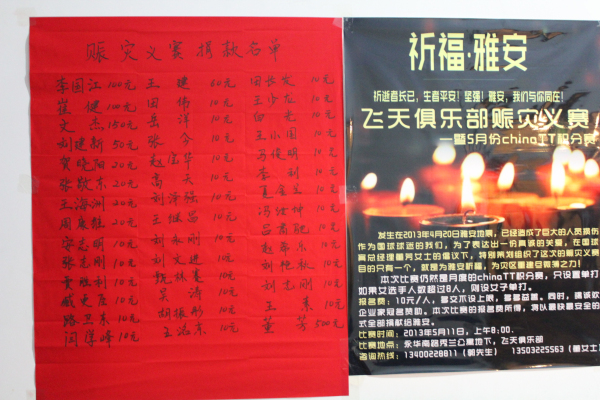 赈灾义赛捐款名单
李国江 100元 王建 20元 田长友 10元
崔健 100元 田伟 10元 王少龙 10元
文杰 150元 岳洋 10元 白光 10元
刘建新 50元 张今 10元 王小国 10元
贺晓阳 20元 10元 苏俊明 10元
张敬东 20元 高天 10元 李利 10元
王海洲 20元 刘泽强 10元 10元
周康龍 20元 王继昌 10元 10元
宋志明 10元 刘永刚 10元 10元
张志刚 10元 刘文进 10元 10元
贾胜利 10元 10元 10元
10元 吴涛 10元 刘志刚 10元
路卫东 10元 胡振彤 10元 王素 10元
闫肆峰 10元 王志东 10元 董芳 500元
祈福·雅安
祈逝者长已，生者平安！坚强！雅安，我们与你同在！
飞天俱乐部赈灾义赛
—暨5月份chinaTT积分赛
发生在2013年4月20日雅安地震，已经造成了巨大的人员损伤
作为国球球迷的我们，为了表达出一份真挚的关爱，在国球
赛总经理董芳女士的倡议下，特别策划组织了这次的赈灾义赛
目的只有一个，就是为雅安祈福，为灾区重建尽绵薄之力！
本次比赛仍然是月度的chinaTT积分赛，只设置单打
如果女选手人数超过8人，则设女子单打。
报名费：10元/人，多交不设上限，多多益善。同时，竭诚欢
企业家冠名赞助。本次比赛的报名费所得，将以最快最安全的
式全部捐献给雅安。
比赛时间：2013年5月11日，上午8:00。
比赛地点：永华南路秀兰公寓地下，飞天俱乐部
咨询热线：13400228811（郭先生） 13503225563（董女士）